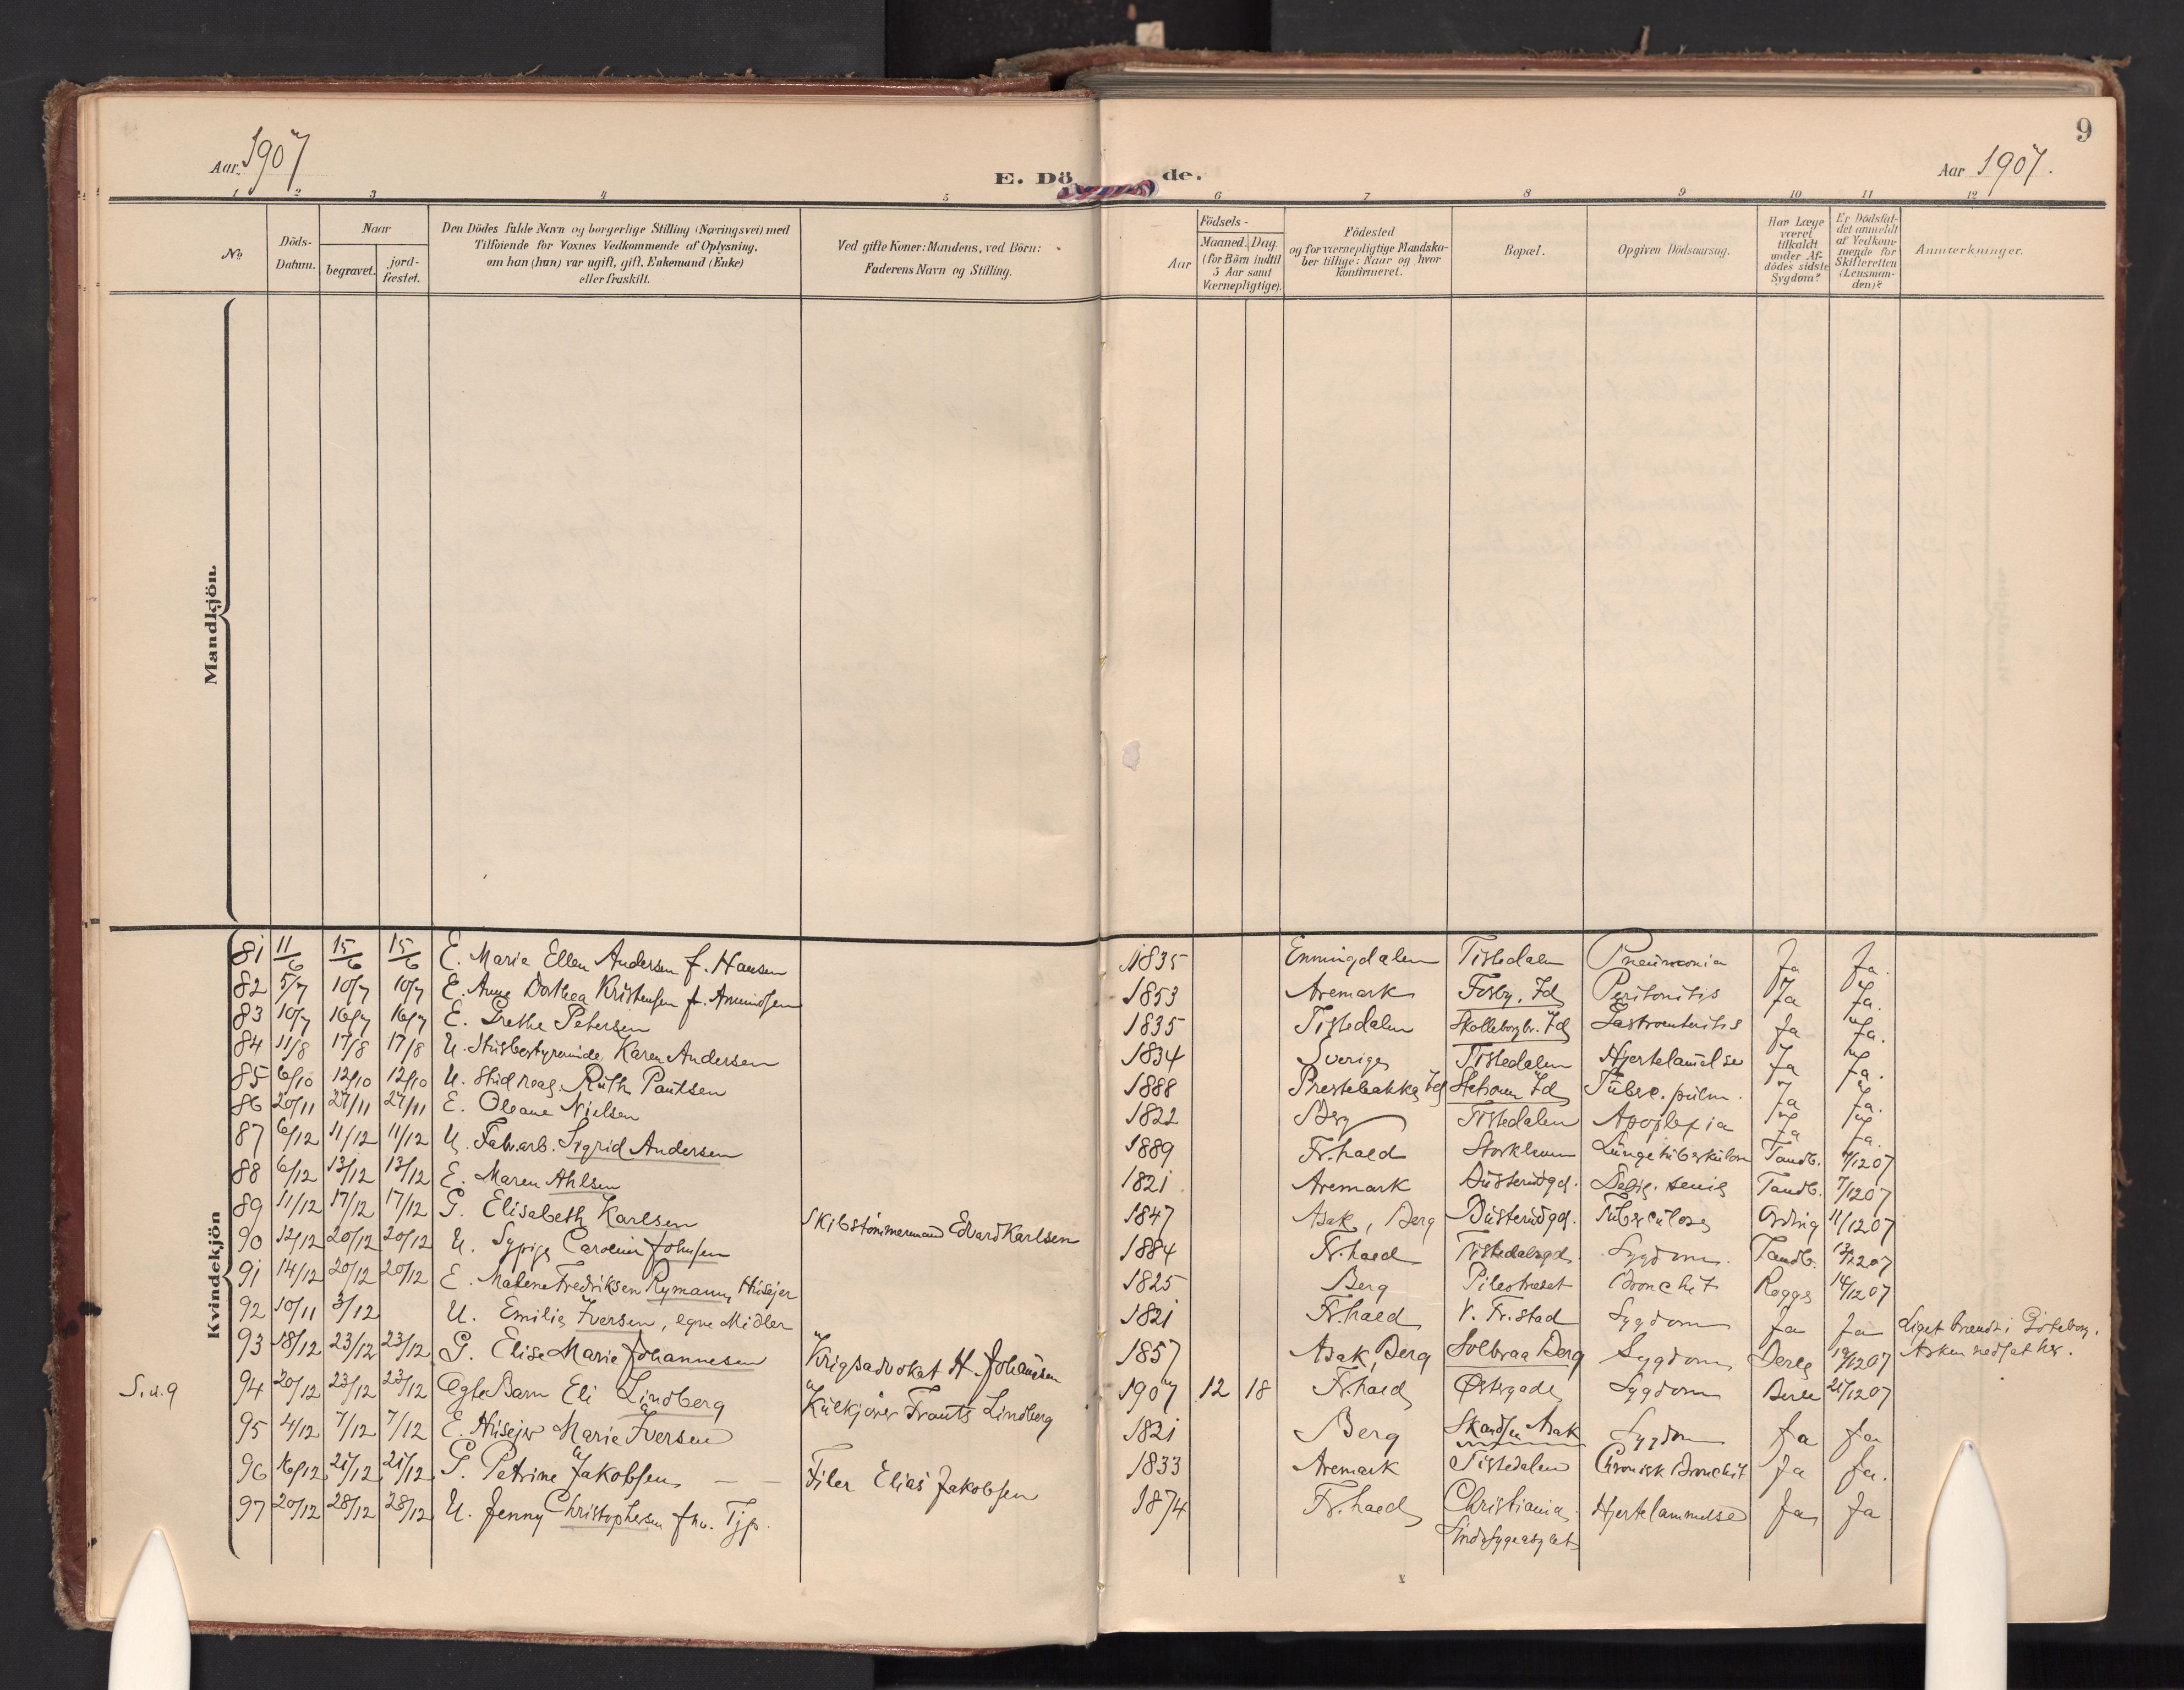 Aar 1907
E. Dö de.
Aar 1907.
9
1 2 3 4 5 6 7 8 9 10 11 12
No
Döds-Datum.
Naar
begravet.
jord-fæstet.
Den Dödes fulde Navn og borgerlige Stilling (Næringsvei) med
Tilföiende for Voxnes Vedkommende af Oplysning,
om han (hun) var ugift, gift, Enkemand (Enke)
eller fraskilt.
Ved gifte Koner: Mandens, ved Börn:
Faderens Navn og Stilling.
Aar
Födsels-
Maaned. Dag.
(for Börn indtil
5 Aar samt
Værnepligtige).
Födested
og for værnepligtige Mandska-
ber tillige: Naar og hvor
Konfirmeret.
Bopæl.
Opgiven Dödsaarsag.
Har Læge
været
tilkaldt
under Af-
dödes sidste
Sygdom?
Er Dödsfal-
det anmeldt
af Vedkom-
mende for
Skifteretten
(Lensman-
den)?
Anmerkninger.
Mandkjön.
Kvindekjön
81 11/6 15/6 15/6 E. Maria Ellen Andersen f. Hansen 1835 Enningdalen Tistedalen Pneumonia Ja Ja.
82 5/7 10/7 10/7 E. Anne Dorthea Kristensen f. Amundsen 1853 Aremark Fosby, Id Peritonitis Ja Ja.
83 10/7 16/7 16/7 E. Grethe Petersen 1835 Tistedalen Skolleborgbr. Id Gastroenteritis Ja Ja.
84 11/8 17/8 17/8 U. Husbestyrerinde Karen Andersen 1834 Sverige Tistedalen Hjertelamelse Ja Ja.
85 6/10 12/10 12/10 U. Stud. real. Ruth Paulsen 1888 Prestebakke Id Id Tuberc. pulm. Ja Ja.
86 20/11 27/11 27/11 E. Oleane Nielsen 1822 Berg Tistedalen Apoplexia Ja Ja.
87 6/12 11/12 11/12 U. Fabr.arb. Sigrid Andersen 1889 Fr.hald Lungetuberkulose Tandb. 7/12 07
88 6/12 13/12 13/12 E. Maren Ahlsen 1821 Aremark Busterudgd. Debil. senil Tandb. 7/12 07
89 11/12 17/12 17/12 G. Elisabeth Karlsen Skibstömmermand Edvard Karlsen 1847 Asak, Berg Busterudgd. Tuberculose 11/12 07
90 12/12 20/12 20/12 U. Sypige Caroline Johnsen 1884 Fr.hald Tistedalsgd. Sygdom. Tandb. 13/12 07
91 14/12 20/12 20/12 E. Malene Fredriksen Rymann, Husejer 1825 Berg Pilestrædet Bronchit Rogge 14/12 07
92 10/11 3/12 U. Emilie Iversen, egne Midler 1821 Fr.hald V. Fr.stad Sygdom Ja Ja Liget brændt i Göteborg.
Asken nedsat her.
93 18/12 23/12 23/12 G. Elise Marie Johannesen Krigsadvokat H. Johansen 1857 Asak, Berg Solbraa Berg Sygdom 19/12 07
S. d. 9 94 20/12 23/12 23/12 Ægte Barn Eli Lindberg Kulkjører Frants Lindberg 1907 12 18 Fr.hald Østergade Sygdom 21/12 07
95 4/12 7/12 7/12 E. Husejer Marie Iversen 1821 Berg Asak Sygdom Ja Ja
96 16/12 21/12 21/12 G. Petrine Jakobsen Filer Elias Jakobsen 1833 Aremark Tistedalen Chronisk Bronchit Ja Ja.
97 20/12 28/12 28/12 U. Jenny Christophersen fhv. Tjp. 1874 Fr.hald Christiania Hjertelammelse Ja Ja
Sindssygeasylet